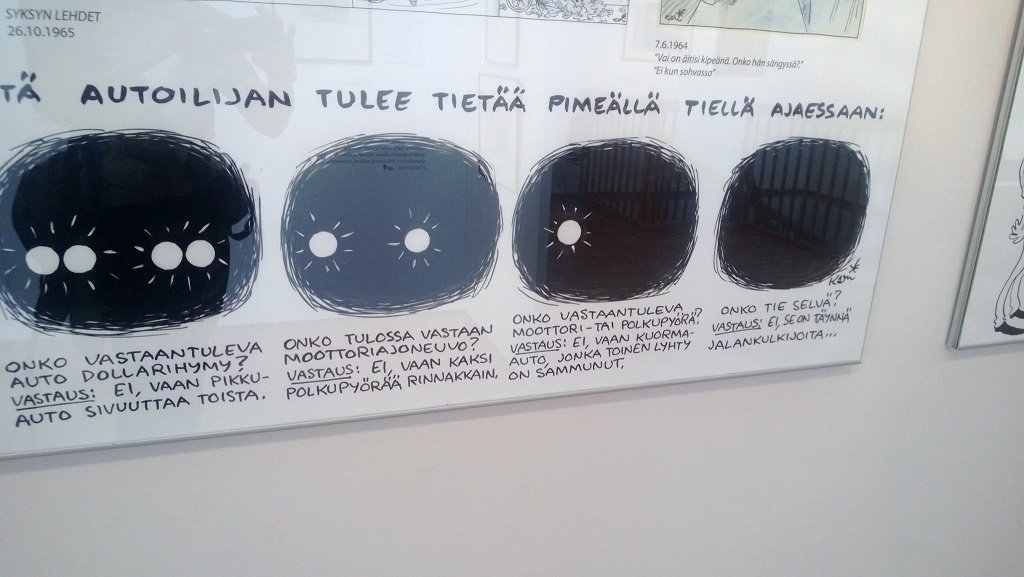 SYKSYN LEHDET
26.10.1965
7.6.1964
"Vai on äitisi kipeänä. Onko hän sängyssä?."
"Ei kun sohvassa"
TÄ AUTOILIJAN TULEE TIETÄÄ PIMEÄLLÄ TIELLÄ AJAESSAAN:
ONKO VASTAANTULEVA
AUTO DOLLARIHYMY?
VASTAUS: EI, VAAN PIKKU-
AUTO SIVUUTTAA TOISTA.
ONKO TULOSSA VASTAAN
MOOTTORIAJONEUVO?
VASTAUS: EI, VAAN KAKSI
POLKUPYÖRÄÄ RINNAKKAIN.
ONKO VASTAANTULEVA
MOOTTORI- TAI POLKUPYÖRÄ?
VASTAUS: EI, VAAN KUORMA-
AUTO, JONKA TOINEN LYHTY
ON SAMMUNUT.
ONKO TIE SELVÄ?
VASTAUS: EI, SE ON TÄYNNÄ
JALANKULKIJOITA...